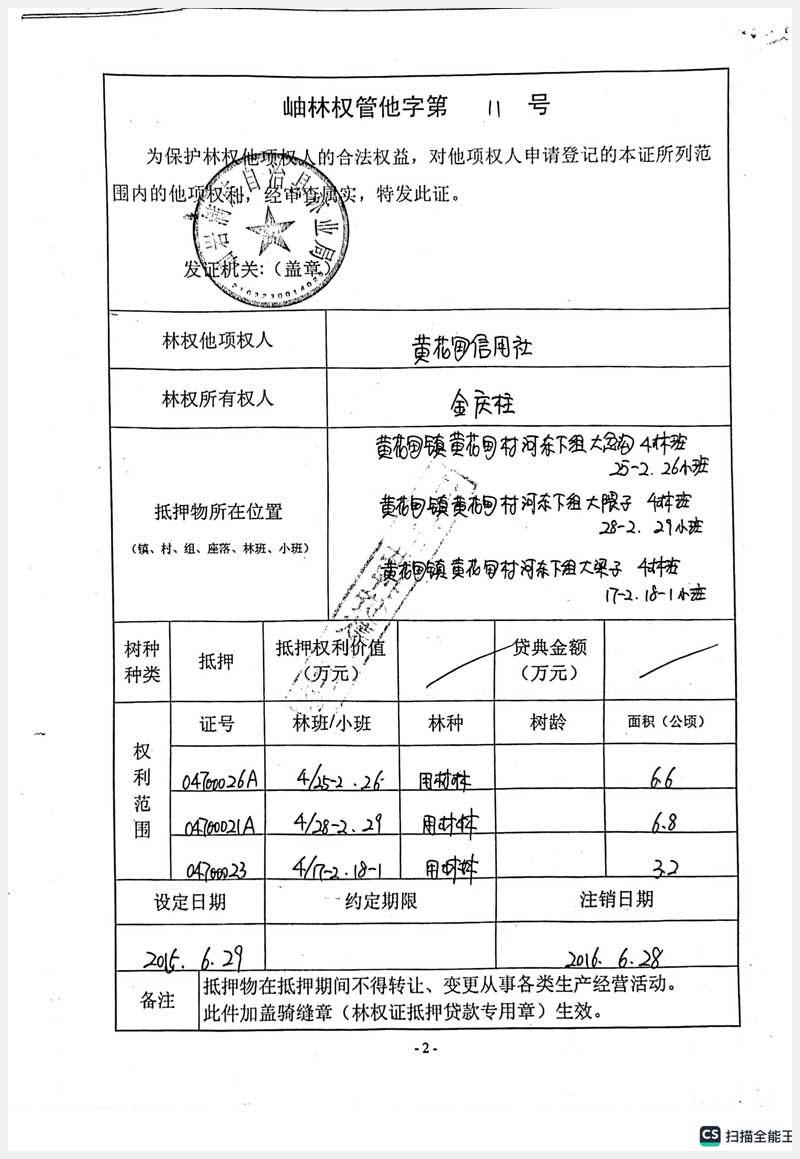 岫林权管他字第 11 号
为保护林权他项权人的合法权益，对他项权人申请登记的本证所列范
围内的他项权利，经审查属实，特发此证。
发证机关：（盖章）
2103230014029
林权他项权人 黄花甸信用社
林权所有权人 金庆柱
抵押物所在位置
（镇、村、组、座落、林班、小班）
黄花甸镇黄花甸村河东下组大岔沟 4林班
25-2．26小班
黄花甸镇黄花甸村河东下组大隈子 4林班
28-2．29小班
黄花甸镇黄花甸村河东下组大梁子 4林班
17-2．18-1小班
树种种类 抵押 抵押权利价值（万元） 贷典金额（万元）
权利范围 证号 林班/小班 林种 树龄 面积（公顷）
04700026A 4/25-2．26 用材林 6.6
04700021A 4/28-2．29 用材林 6.8
04700023 4/17-2．18-1 用材林 3.2
设定日期 约定期限 注销日期
2015．6．29 2016．6．28
备注 抵押物在抵押期间不得转让、变更从事各类生产经营活动。
此件加盖骑缝章（林权证抵押贷款专用章）生效。
- 2 -
CS 扫描全能王